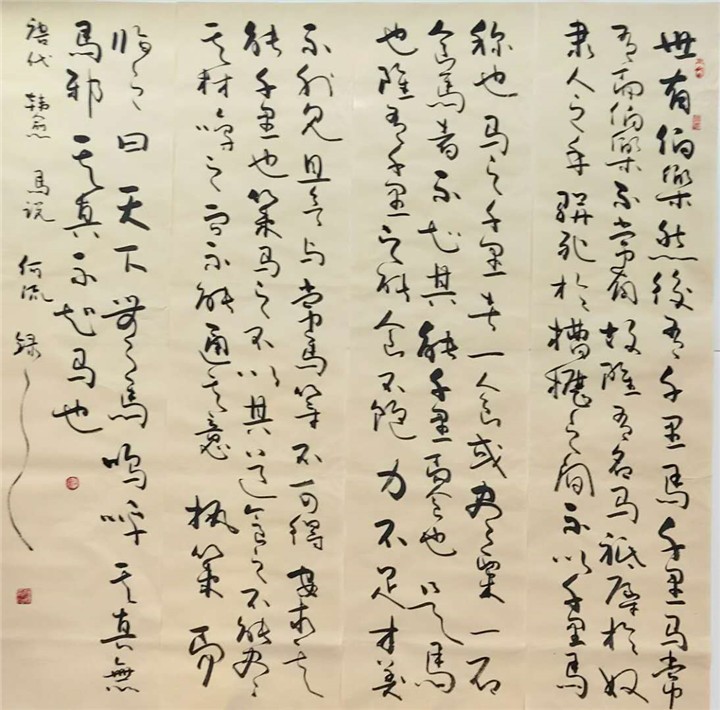 世有伯樂然後有千里馬千里馬常
有而伯樂不常有故雖有名马祗辱於奴
隶人之手駢死於槽櫪之間不以千里馬
称也马之千里者一食或盡粟一石
食馬者不知其能千里而食也是馬
也雖有千里之能食不飽力不足才美
不外见且欲与常马等不可得安求其
能千里也策马之不以其道食之不能盡
其材鳴之而不能通其意執策而
臨之曰天下無馬嗚呼其真無
馬邪其真不知马也
唐代 韩愈 馬说 何流 録